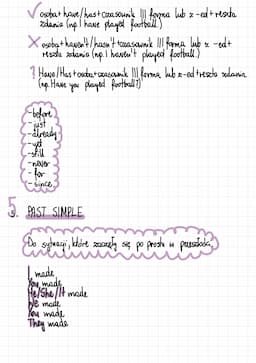 ✓ osoba + have/has + czasownik III forma lub z -ed + reszta
zdania (np. I have played football.)
X osoba + haven't/hasn't + czasownik III forma lub z -ed +
reszta zdania (np. I haven't played football.)
? Have/Has + osoba + czasownik III forma lub z -ed + reszta zdania
(np. Have you played football?)
-before
-just
-already
-yet
-still
-never
-for
-since
5. PAST SIMPLE
Do sytuacji, które zaczęły się po prostu w przeszłości,
I made
You made
He/She/It made
We made
You made
They made